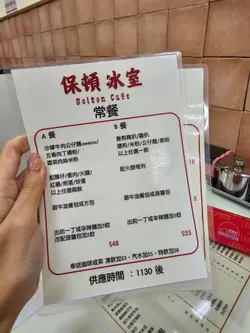 保頓冰室
Bolton Cafe
常餐
A 餐
B 餐
沙嗲牛肉公仔麵
五香肉丁通粉
雪菜肉絲米粉
香煎豬扒/雞扒
通粉/公仔麵/米粉
以上任選一款
以上任選兩款
配腸仔/餐肉/火腿/
紅腸/煎蛋/炒蛋
以上任選一款
配火腿奄列
跟牛油餐包或方包
跟牛油餐包或菠蘿包
出前一丁或辛辣麵加5蚊
改配菠蘿包加3蚊
出前一丁或辛辣麵加5蚊
$48
$55
奉送咖啡或茶 凍飲加$3、汽水加$5、特飲加$8
供應時間：1130 後